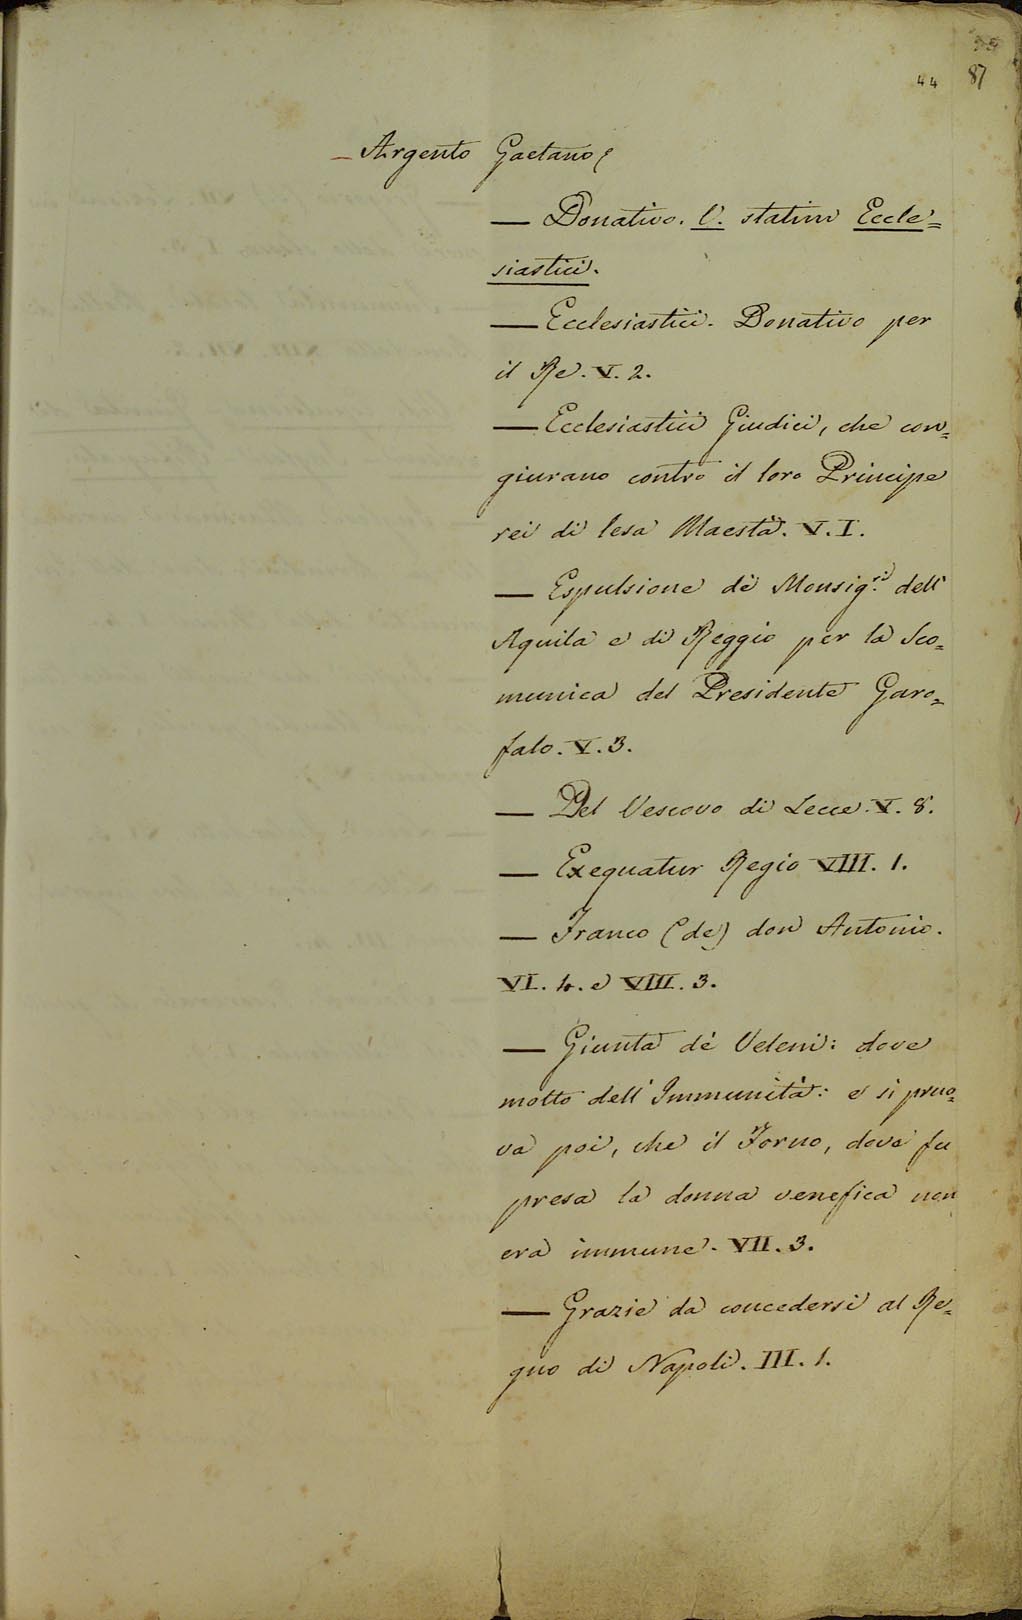 44 87
Argento Gaetano
— Donativo. V. statim Eccle=
siastici.
— Ecclesiastici. Donativo per
il Re. V. 2.
— Ecclesiastici Giudici, che con=
giurano contro il loro Principe
rei di lesa Maestà. V. I.
— Espulsione dè Monsig.ri dell'
Aquila e di Reggio per la Sco=
munica del Presidente Garo=
falo. V. 3.
— Del Vescovo di Lecce. V. 8.
— Exequatur Regio VIII. 1.
— Franco (de) don Antonio.
VI. 4. e VIII. 3.
— Giunta dè Veleni: dove
molto dell'Immunità: e si pruo=
va poi, che il Forno, dove fu
presa la donna venefica non
era immune. VII. 3.
— Grazie da concedersi al Re=
gno di Napoli. III. 1.